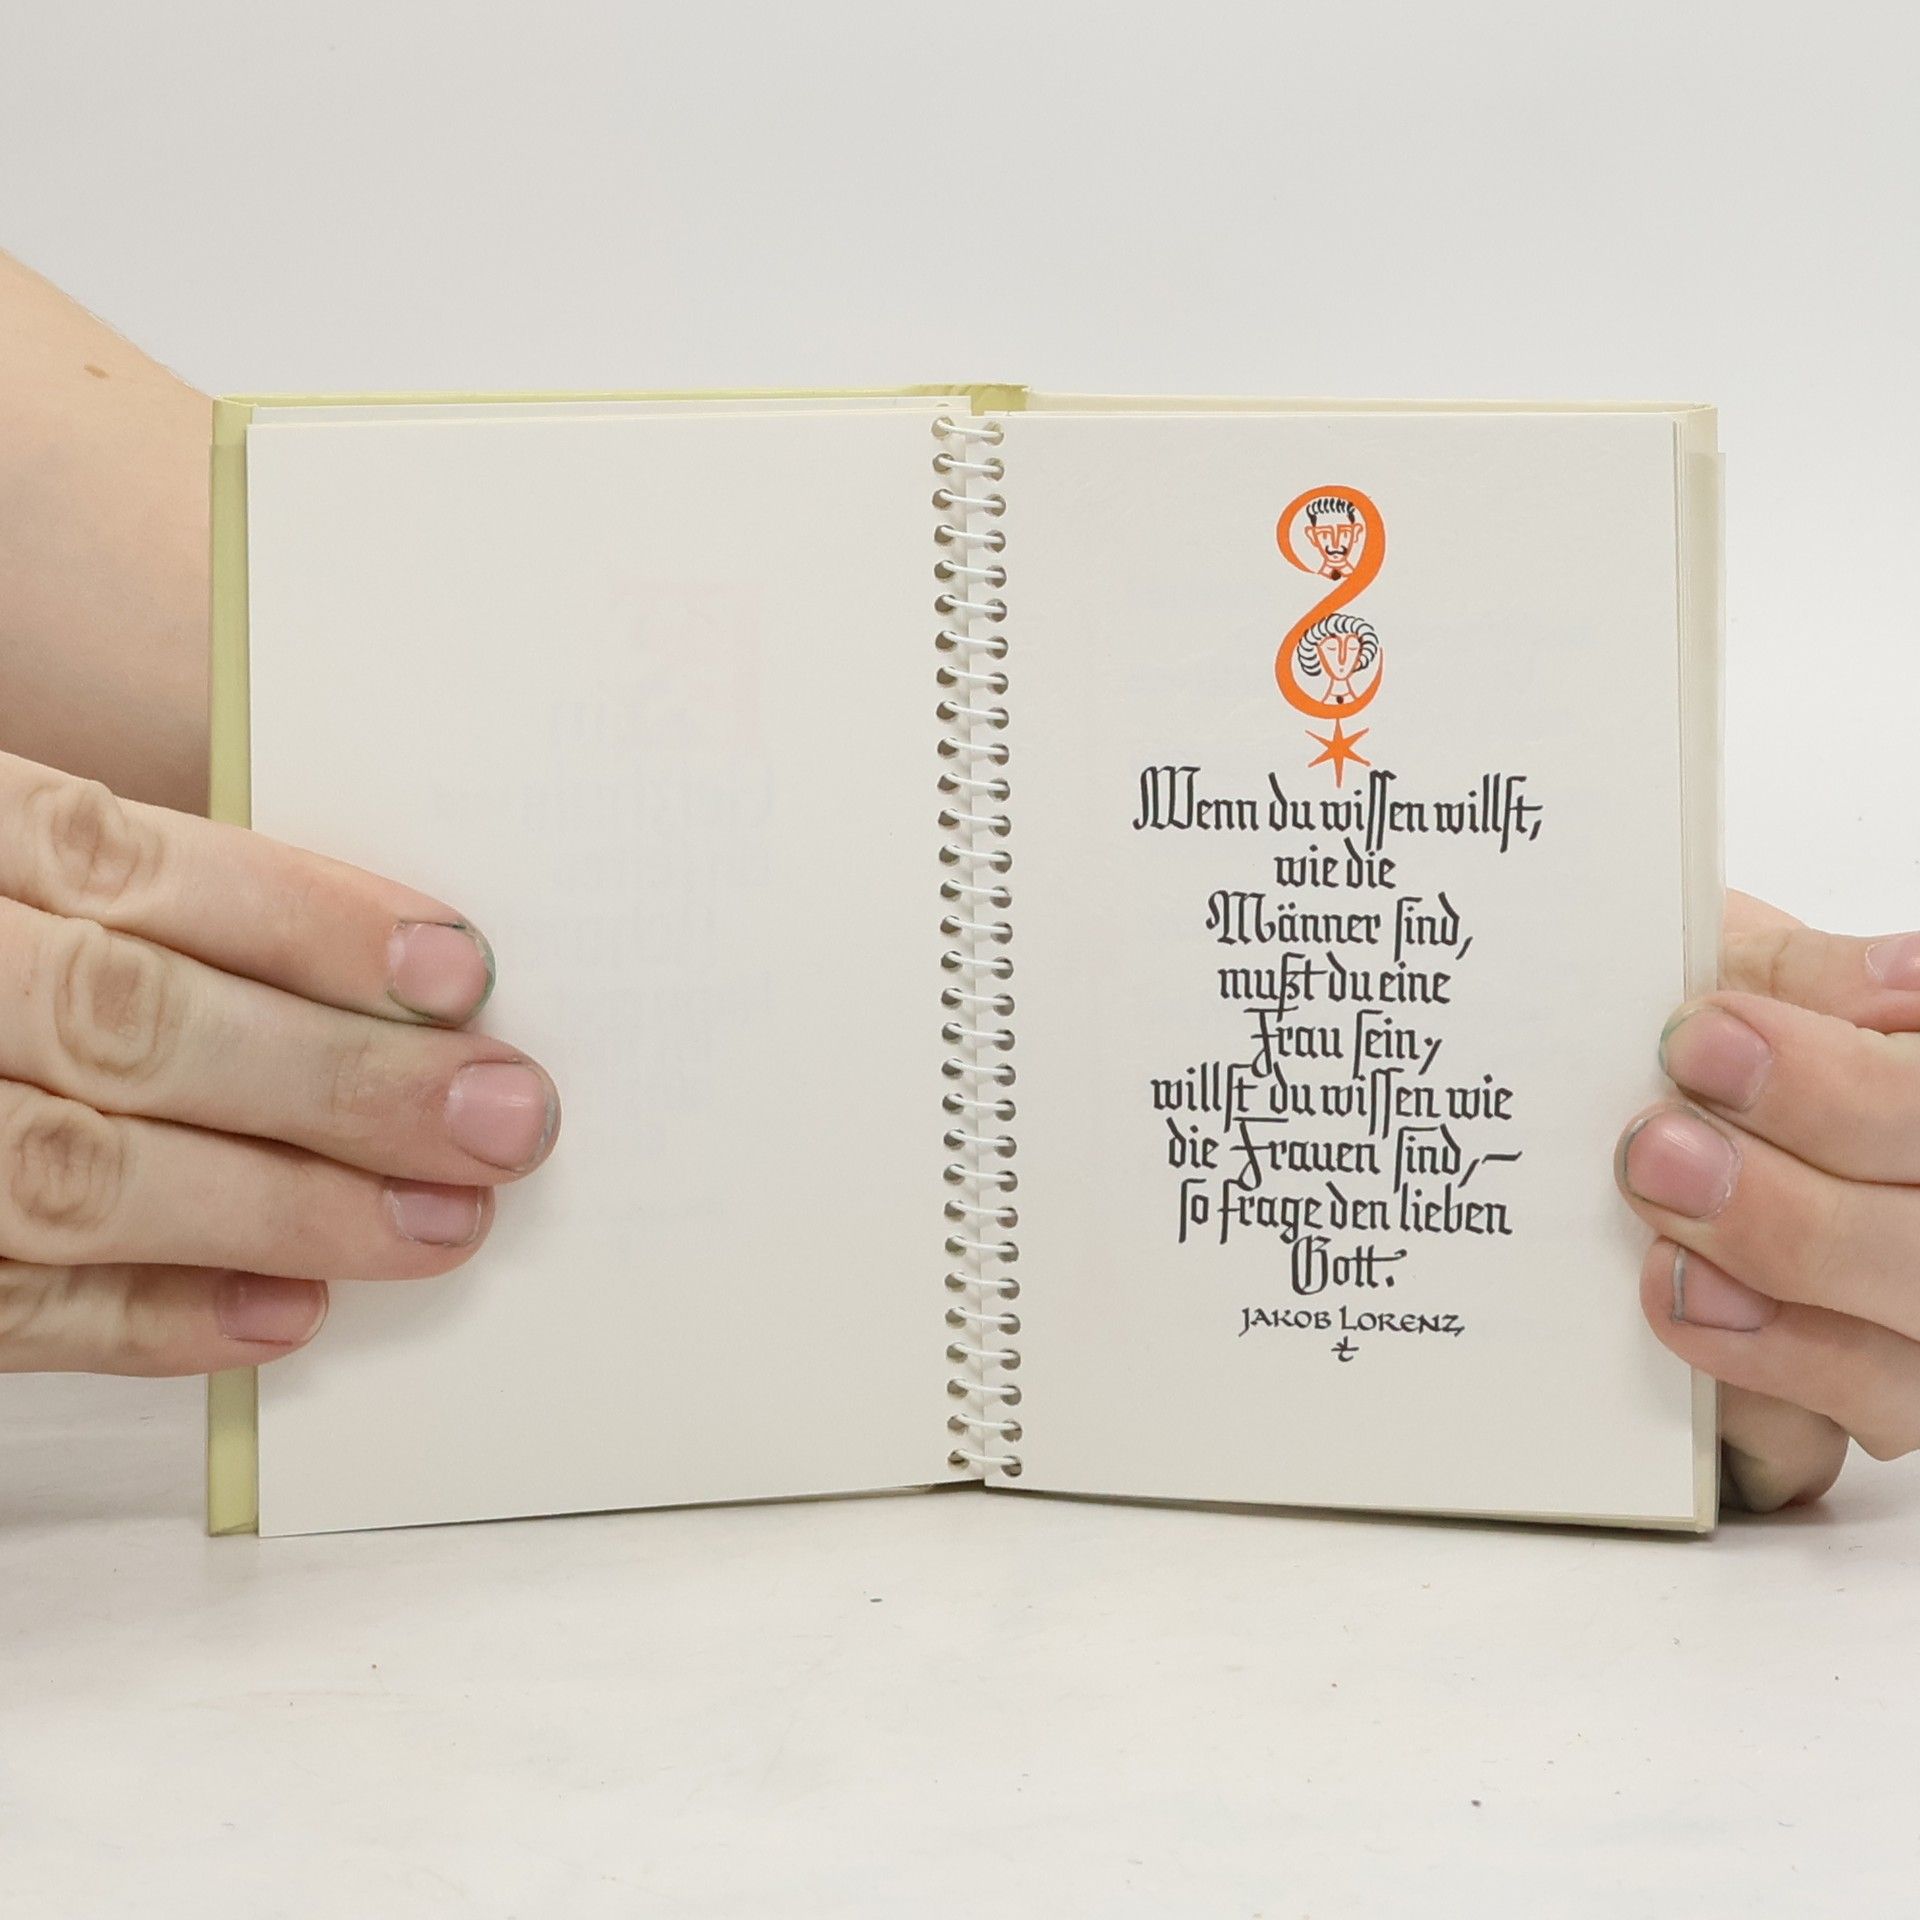 Wenn du wissen willst,
wie die
Männer sind,
mußt du eine
Frau sein;
willst du wissen wie
die Frauen sind, –
so frage den lieben
Gott.
JAKOB LORENZ